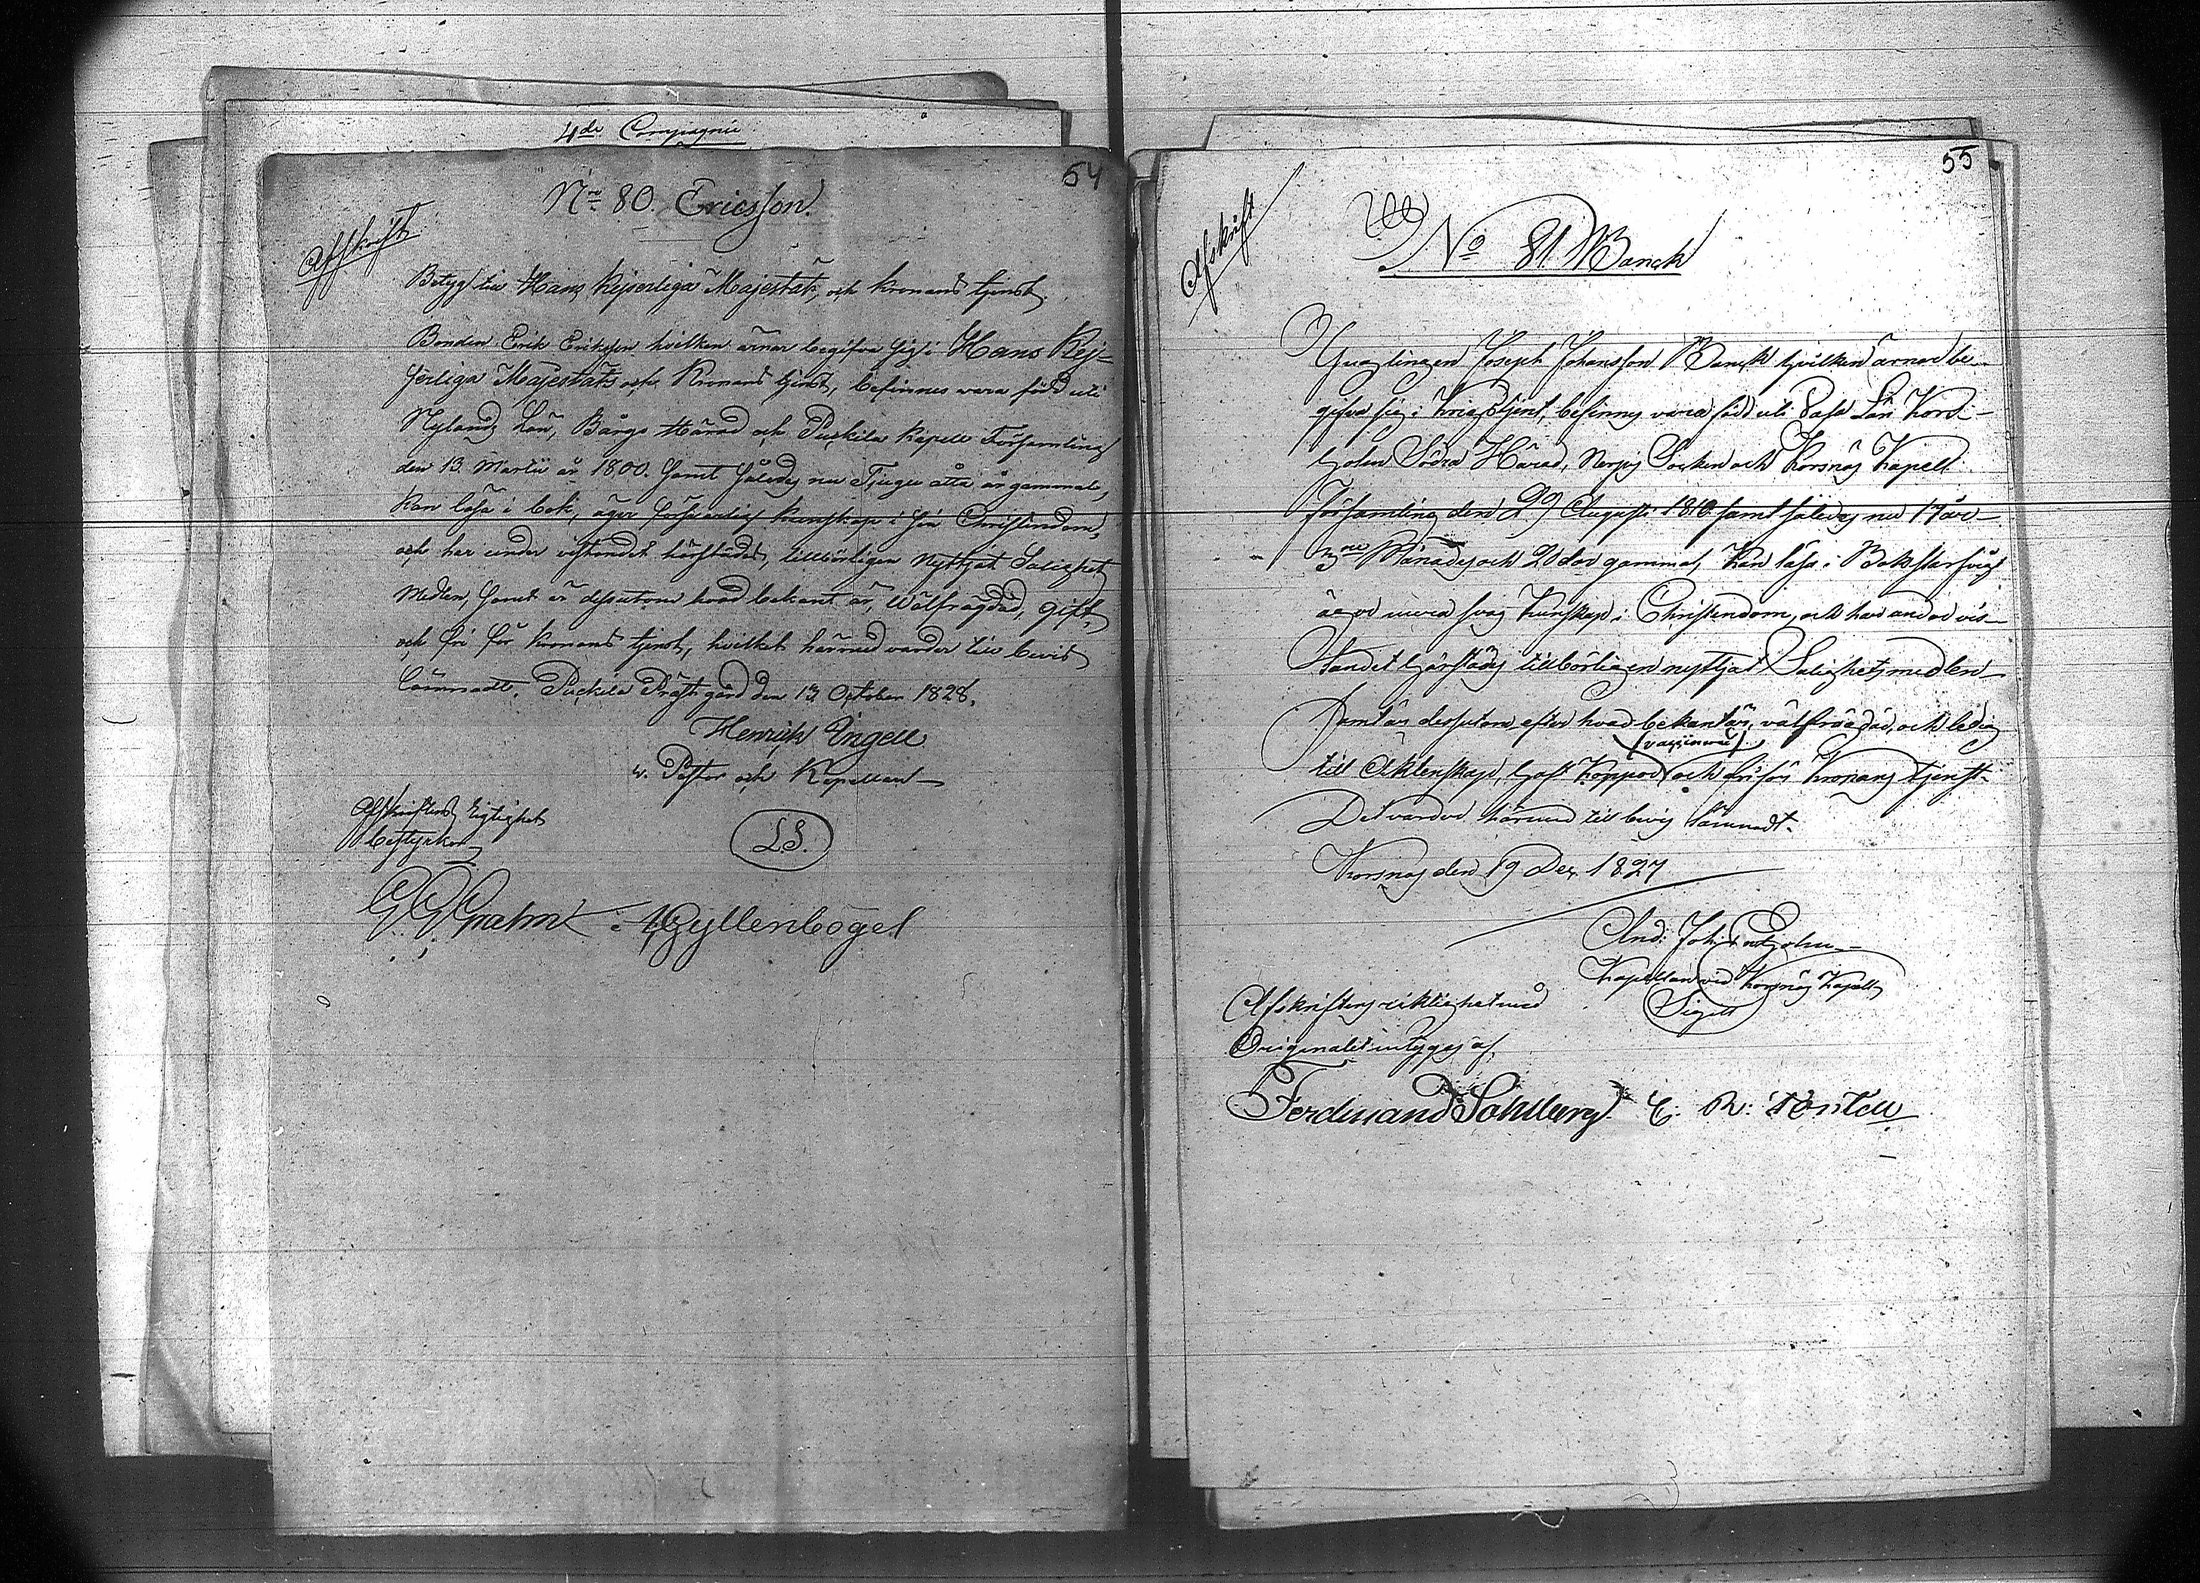 4de Compagnie
54
No 80. Ericsson.
Afskrift
Betyg till Hans Kejserliga Majestäts, och Kronans tjenst.
Bonden Erik Eriksson hvilken ärnar begifva sig i Hans Kej-
serliga Majestäts och Kronans tjenst, befinnes vara född uti
Nylands Län, Bårgo Härad och Puckila Kapell Församling
den 13 Martii år 1800. samt således nu Tjugu åtta år gammal,
kan läsa i bok, äger försvarlig kunskap i sin Christendom,
och har under vistandet härstädes, tillbörligen nyttjat Salighets
Medlen, samt är dessutom hvad bekant är, Wälfrägdad, gift,
och fri för Kronans tjenst, hvilket härmed varder till bevis
lämnadt. Puckila Prästgård den 13 October 1828.
Henrik Engell
v. Pastor och Kapellan
Afskriftens Rigtighet
bestyrker
L.S.
Gyllenbögel
55
Afskrift
No 81. Manck
Ynglingen Joseph Johansson Manck hvilken ärnar be-
gifva sig i Krigstjenst, befinnes vara född uti Vasa Län Kors-
holm Södra Härad, Nerpes Socken och Korsnäs Kapell
Församling den 29 Augusti 1810 samt således nu 17 år
3ne Månader och 20 dar gammal, Kan läsa i Bok svag
äger mera svag Kunskap i Christendom, och har under vis-
tandet härstädes tillbörligen nyttjat Salighetsmedlen
Samt är dessutom efter hvad bekant är, välfrägdad, och ledig
(vaccinerad)
till Äktenskap, haft Koppor och fri för Kronans tjenst.
Det varder härmed till bevis lämnadt.
Korsnäs den 19 Dec. 1827
And: Joh:
Kapellan vid Korsnäs Kapell
Sigill
Afskriftens riktighet med
Originalet intygas af,
Ferdinand Sohlberg. C. R: Tontell